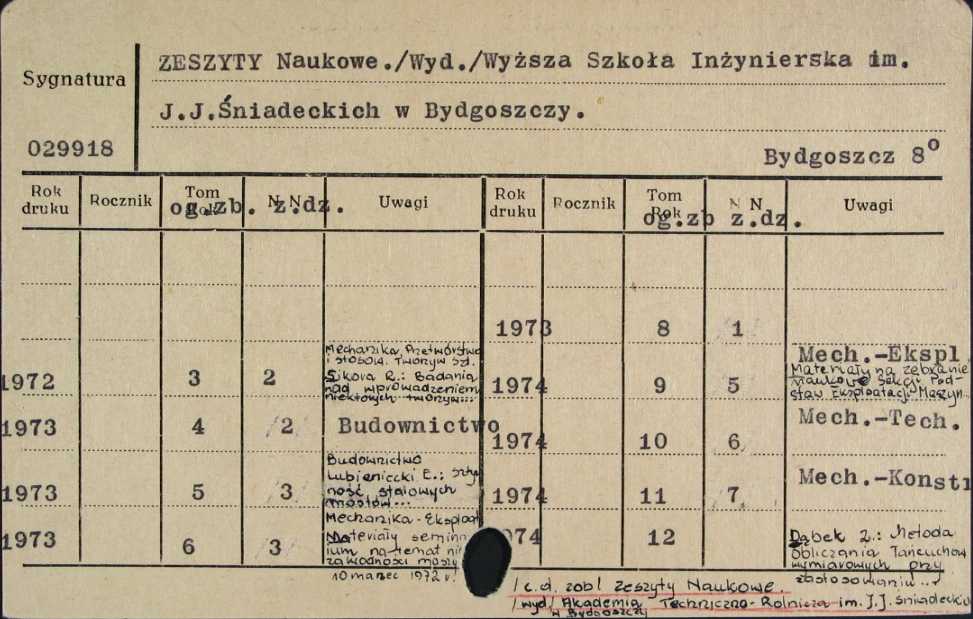 ZESZYTY Naukowe./Wyd./Wyższa Szkoła Inżynierska im.
Sygnatura
J.J.Śniadeckich w Bydgoszczy.
029918
Bydgoszcz 8º
Rok druku Rocznik Tom Rok N N Uwagi Rok druku Rocznik Tom Rok N N Uwagi
og.zb. z.dz. og.zb z.dz.
1973 8 1
Mechanika, Przetwórstwo
i stosow. tworzyw szt.
1972 3 2
Sikora R.: Badania
nad wprowadzeniem
niektórych tworzyw...
Mech.-Ekspl
1974 9 5
Materiały na zebranie
naukowe Sekcji Pod-
staw Eksploatacji Maszyn
1973 4 2 Budownictwo
1974 10 6 Mech.-Tech.
1973 5 3
Budownictwo
Lubieniecki E.:
ność stalowych
mostów...
1974 11 7 Mech.-Konstr
1973 6 3
Mechanika-Eksploat
Materiały semina
ium na temat
zawodności maszyn
10 marzec 1972 r.
74 12
Dąbek Z.: Metoda
obliczania łańcuchów
wymiarowych przy
zastosowaniu...
/c.d. zob/ Zeszyty Naukowe.
/wyd/ Akademia Techniczno-Rolnicza im. J.J. Śniadeckich
w Bydgoszczy